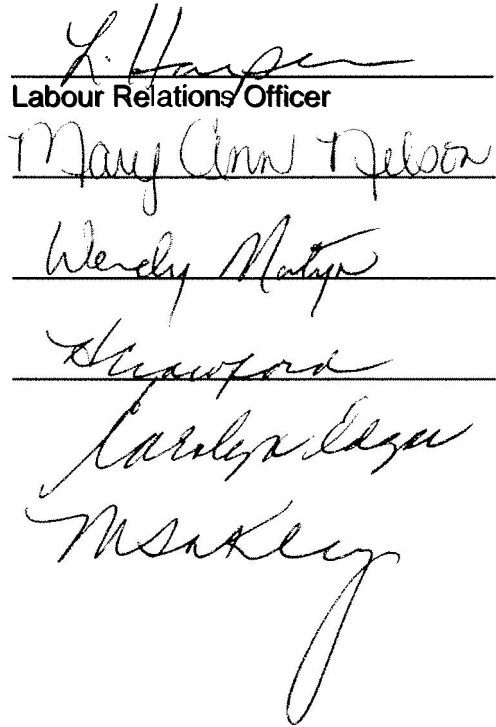 L. Harper
Labour Relations Officer
Mary Ann Nelson
Wendy Martyn
H Crawford
Carolyn Edgar